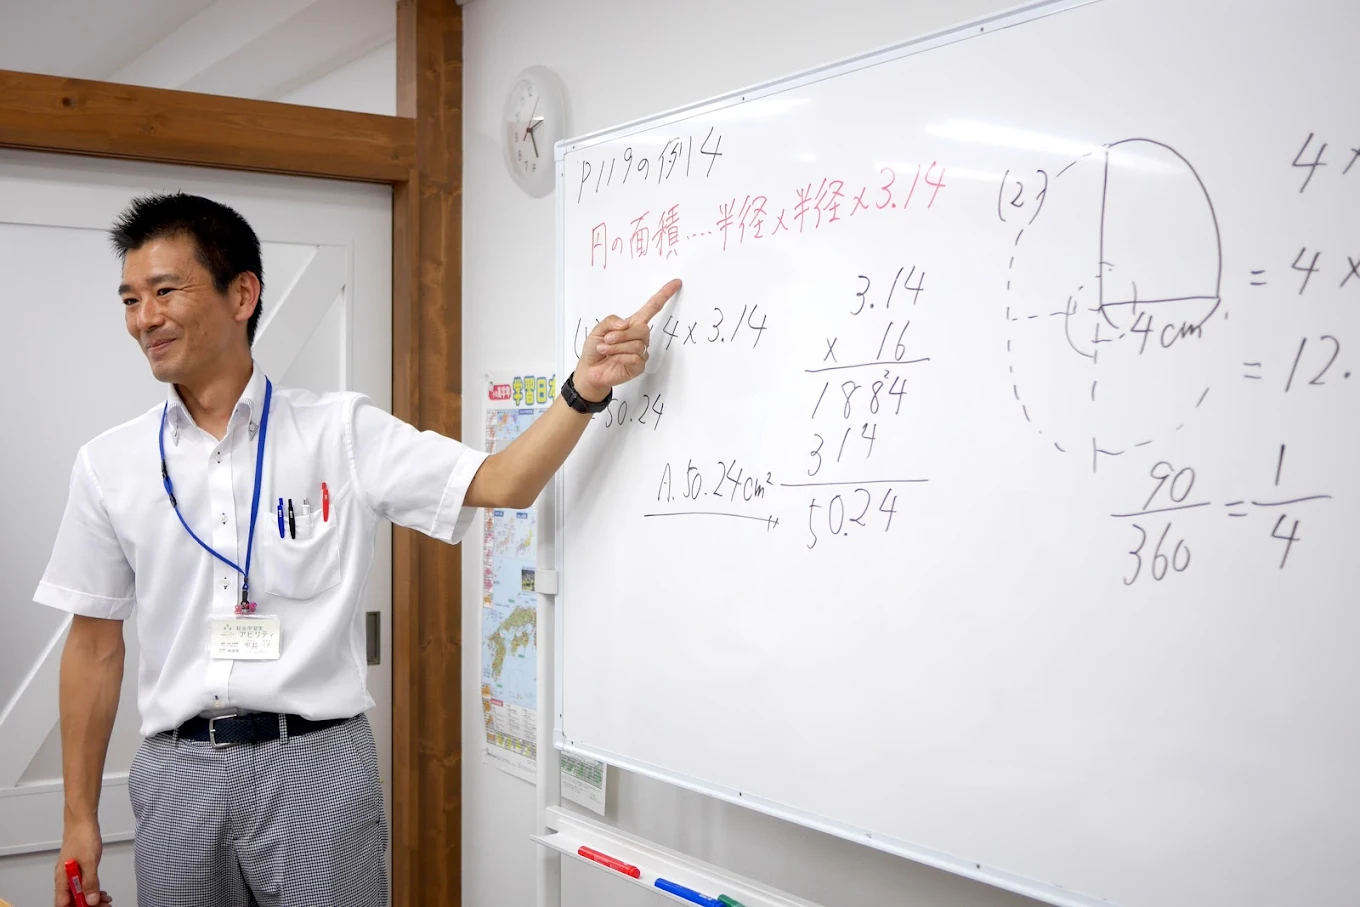 P119の例14
円の面積....半径×半径×3.14
4×3.14
50.24
A.50.24cm²
3.14
× 16
18²84
314
50.24
(2)
4cm
4×
=4×
=12.
90/360=1/4
学習日本
アビリティ